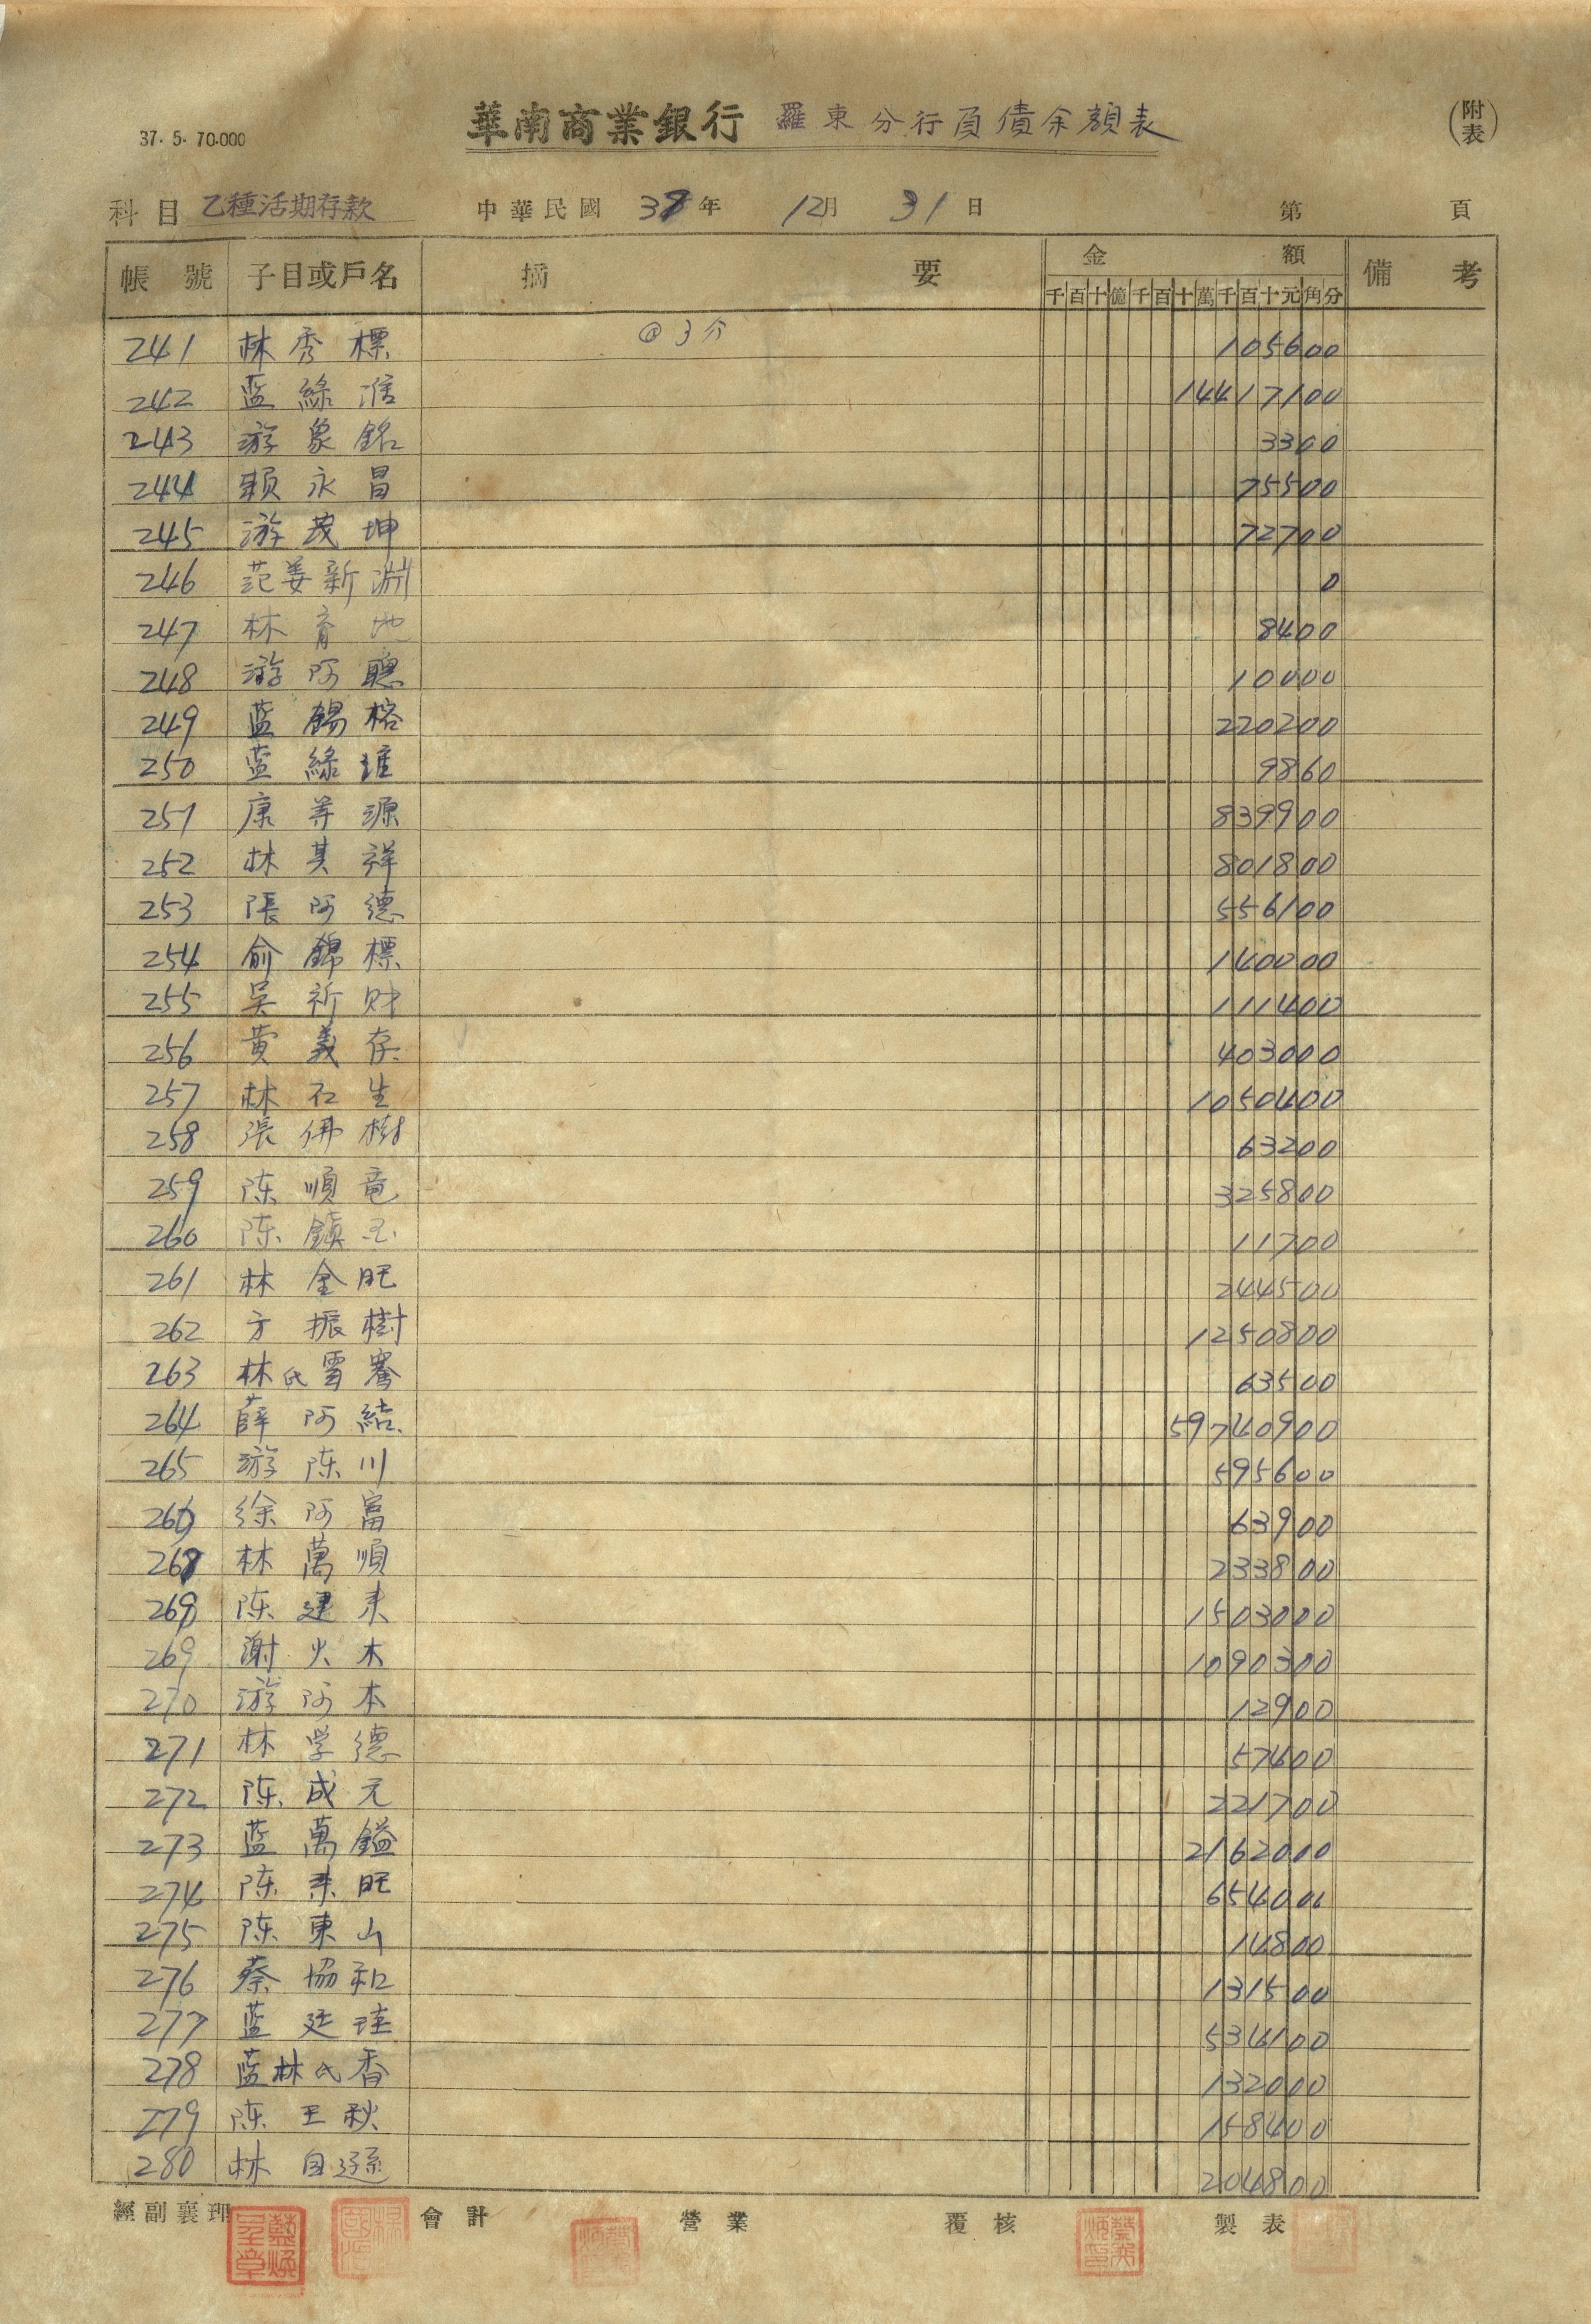 37. 5. 70.000
華南商業銀行 羅東分行負債余額表
(附表)
科目 乙種活期存款 中華民國 38年 12月 31日 第 頁
帳號 子目或戶名 摘要 金額 備考
千百十億千百十萬千百十元角分
241 林秀標 @3分 105600
242 蓝綠淮 14417100
243 游象銘 3300
244 賴永昌 75500
245 游茂坤 72700
246 范姜新淵 0
247 林育地 8400
248 游阿聰 10000
249 蓝錫榕 220200
250 蓝綠琟 9860
251 康等源 839900
252 林其祥 801800
253 張阿德 556100
254 俞錦標 140000
255 吳祈財 111400
256 黄義存 403000
257 林石生 1050400
258 張佛樹 63200
259 陈順竜 325800
260 陈鎮 11700
261 林金旺 244500
262 方振樹 1250800
263 林氏雪 63500
264 薛阿結 59740900
265 游陈川 595600
266 徐阿富 63900
267 林萬順 233800
268 陈建来 1503000
269 謝火木 1090300
270 游阿本 12900
271 林学德 57400
272 陈成元 221700
273 蓝萬鎰 2162000
274 陈来旺 654000
275 陈東山 14800
276 蔡協和 131500
277 蓝廷珪 534100
278 蓝林氏香 132000
279 陈王秋 158400
280 林自遜 204800
經副襄理 會計 營業 覆核 製表